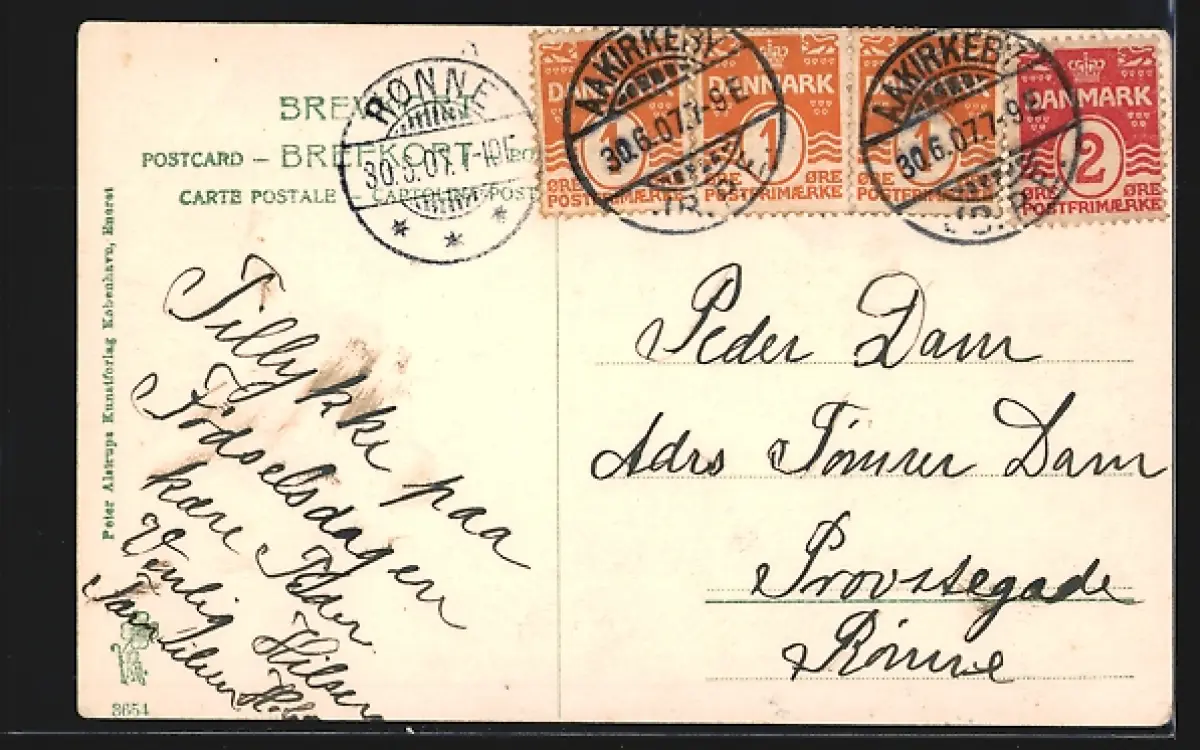 BREVKORT
POSTCARD – BREFKORT
CARTE POSTALE – CARTOLINA POST
RØNNE
30.6.07.7-10E
AAKIRKEBY
30.6.07.7-9E
AAKIRKEBY
30.6.07.7-9E
DANMARK
1
ØRE ØRE
POSTFRIMÆRKE
DANMARK
1
ØRE ØRE
POSTFRIMÆRKE
DANMARK
1
ØRE ØRE
POSTFRIMÆRKE
DANMARK
2
ØRE ØRE
POSTFRIMÆRKE
Peter Alstrups Kunstforlag København, Eneret
Tillykke paa
Fødselsdagen
kære Peder
Venlig Hilsen
3654
Peder Dam
Adrs Tømrer Dam
Provstegade
Rønne